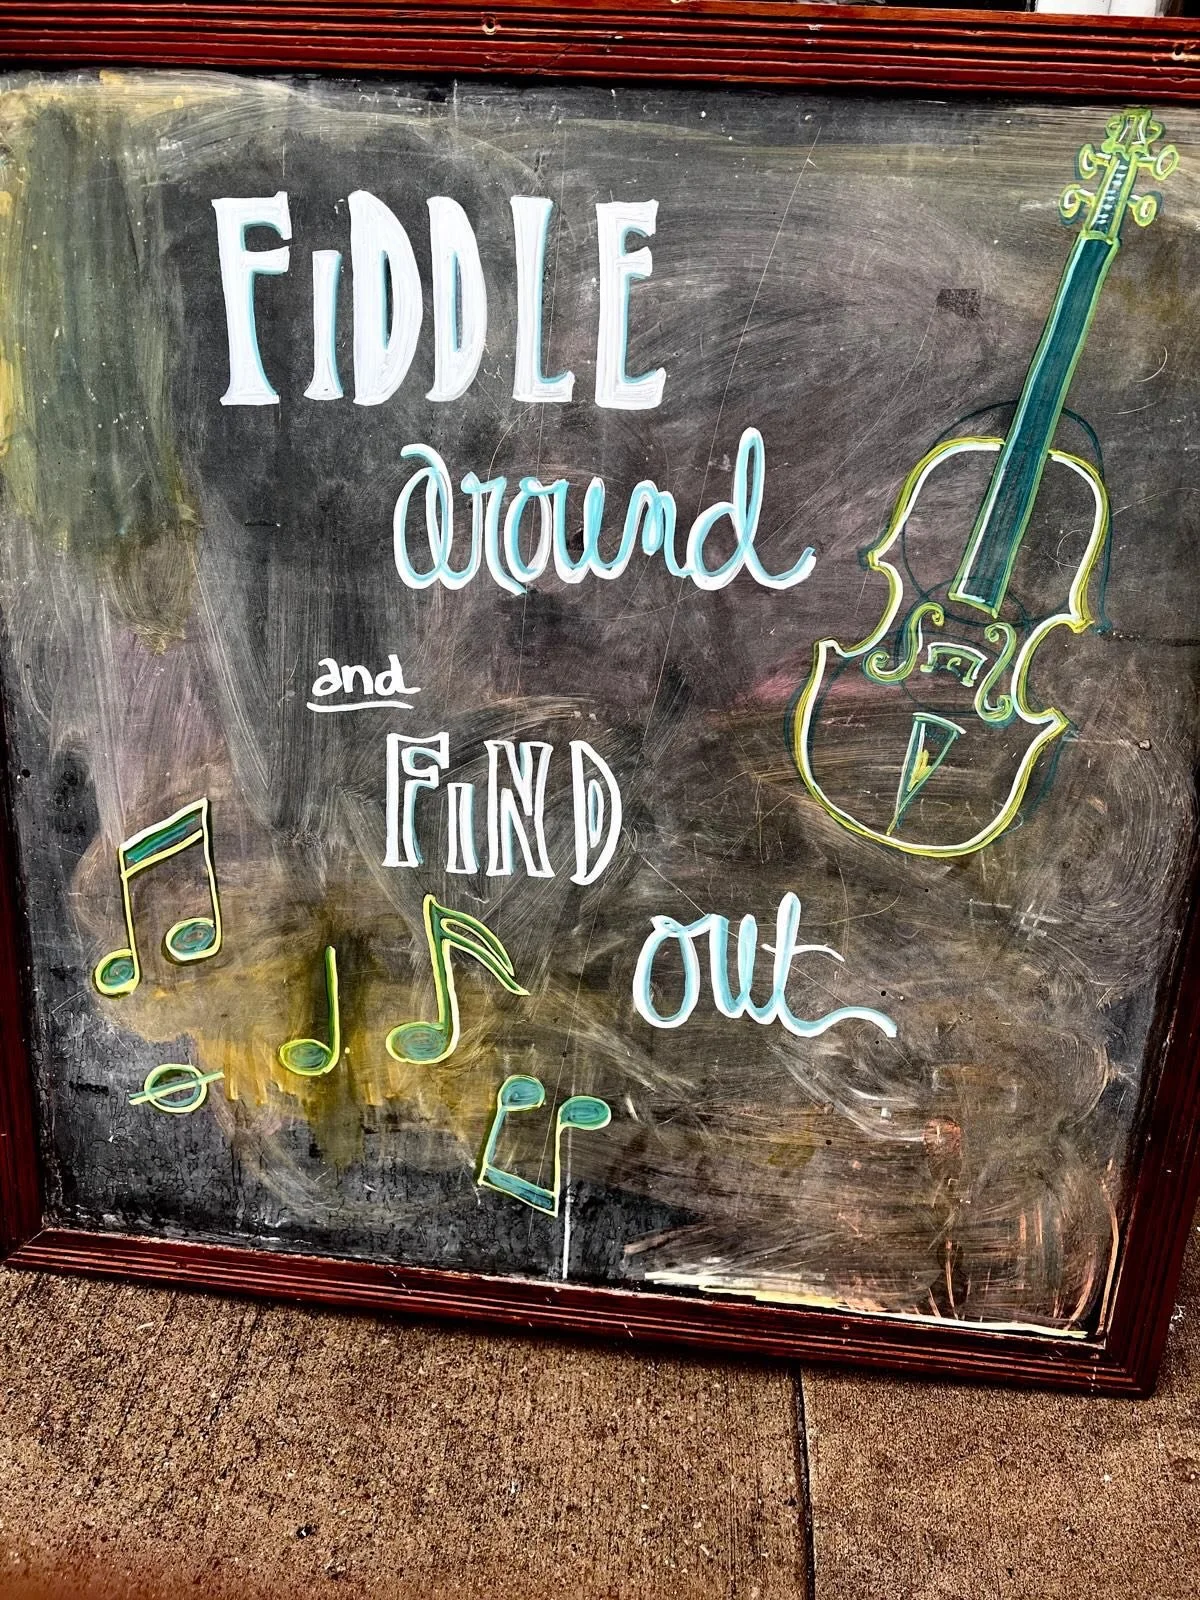 FiDDLE
around
and
FiND
out